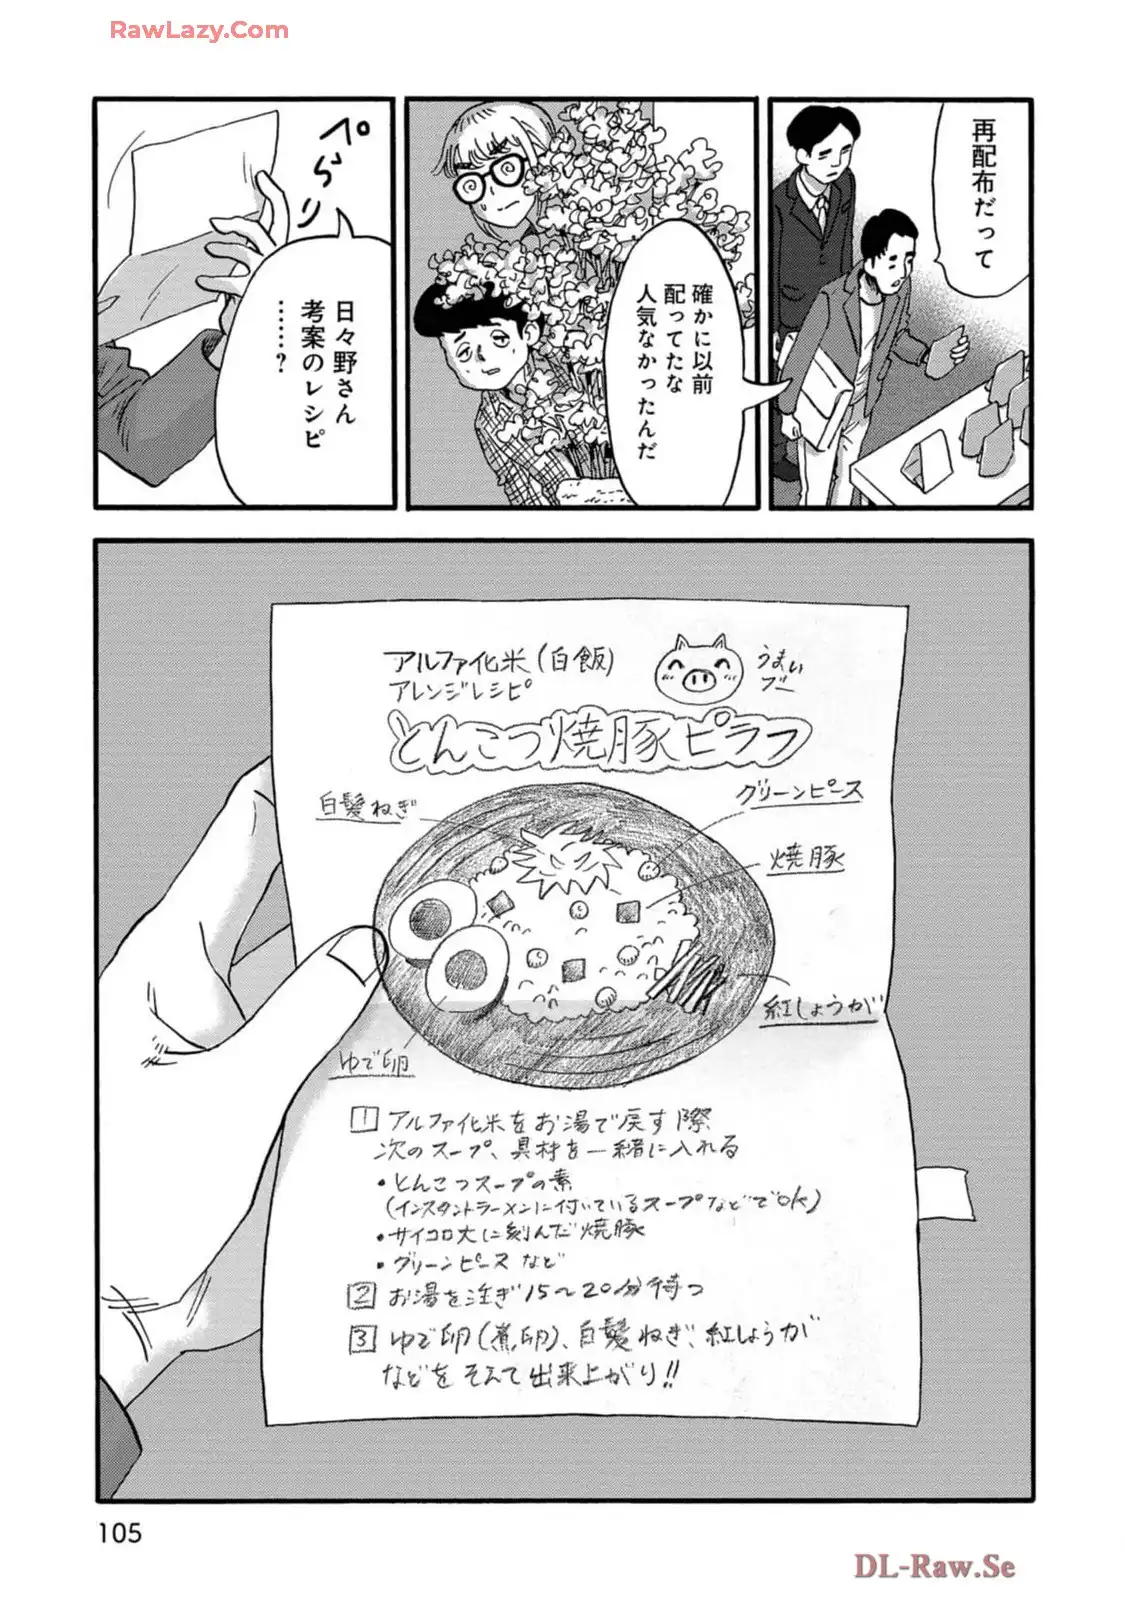 RawLazy.Com
再配布だって
確かに以前
配ってたな
人気なかったんだ
ぺらり
日々野さん
考案のレシピ
……?
アルファ化米(白飯)
アレンジレシピ
うまい
ブー
とんこつ焼豚ピラフ
白髪ねぎ
グリーンピース
焼豚
紅しょうが
ゆで卵
1 アルファ化米をお湯で戻す際
次のスープ、具材を一緒に入れる
・とんこつスープの素
(インスタントラーメンに付いているスープなどでOK)
・サイコロ大に刻んだ焼豚
・グリーンピースなど
2 お湯を注ぎ15〜20分待つ
3 ゆで卵(煮卵)、白髪ねぎ、紅しょうが
などをそえて出来上がり!!
105
DL-Raw.Se